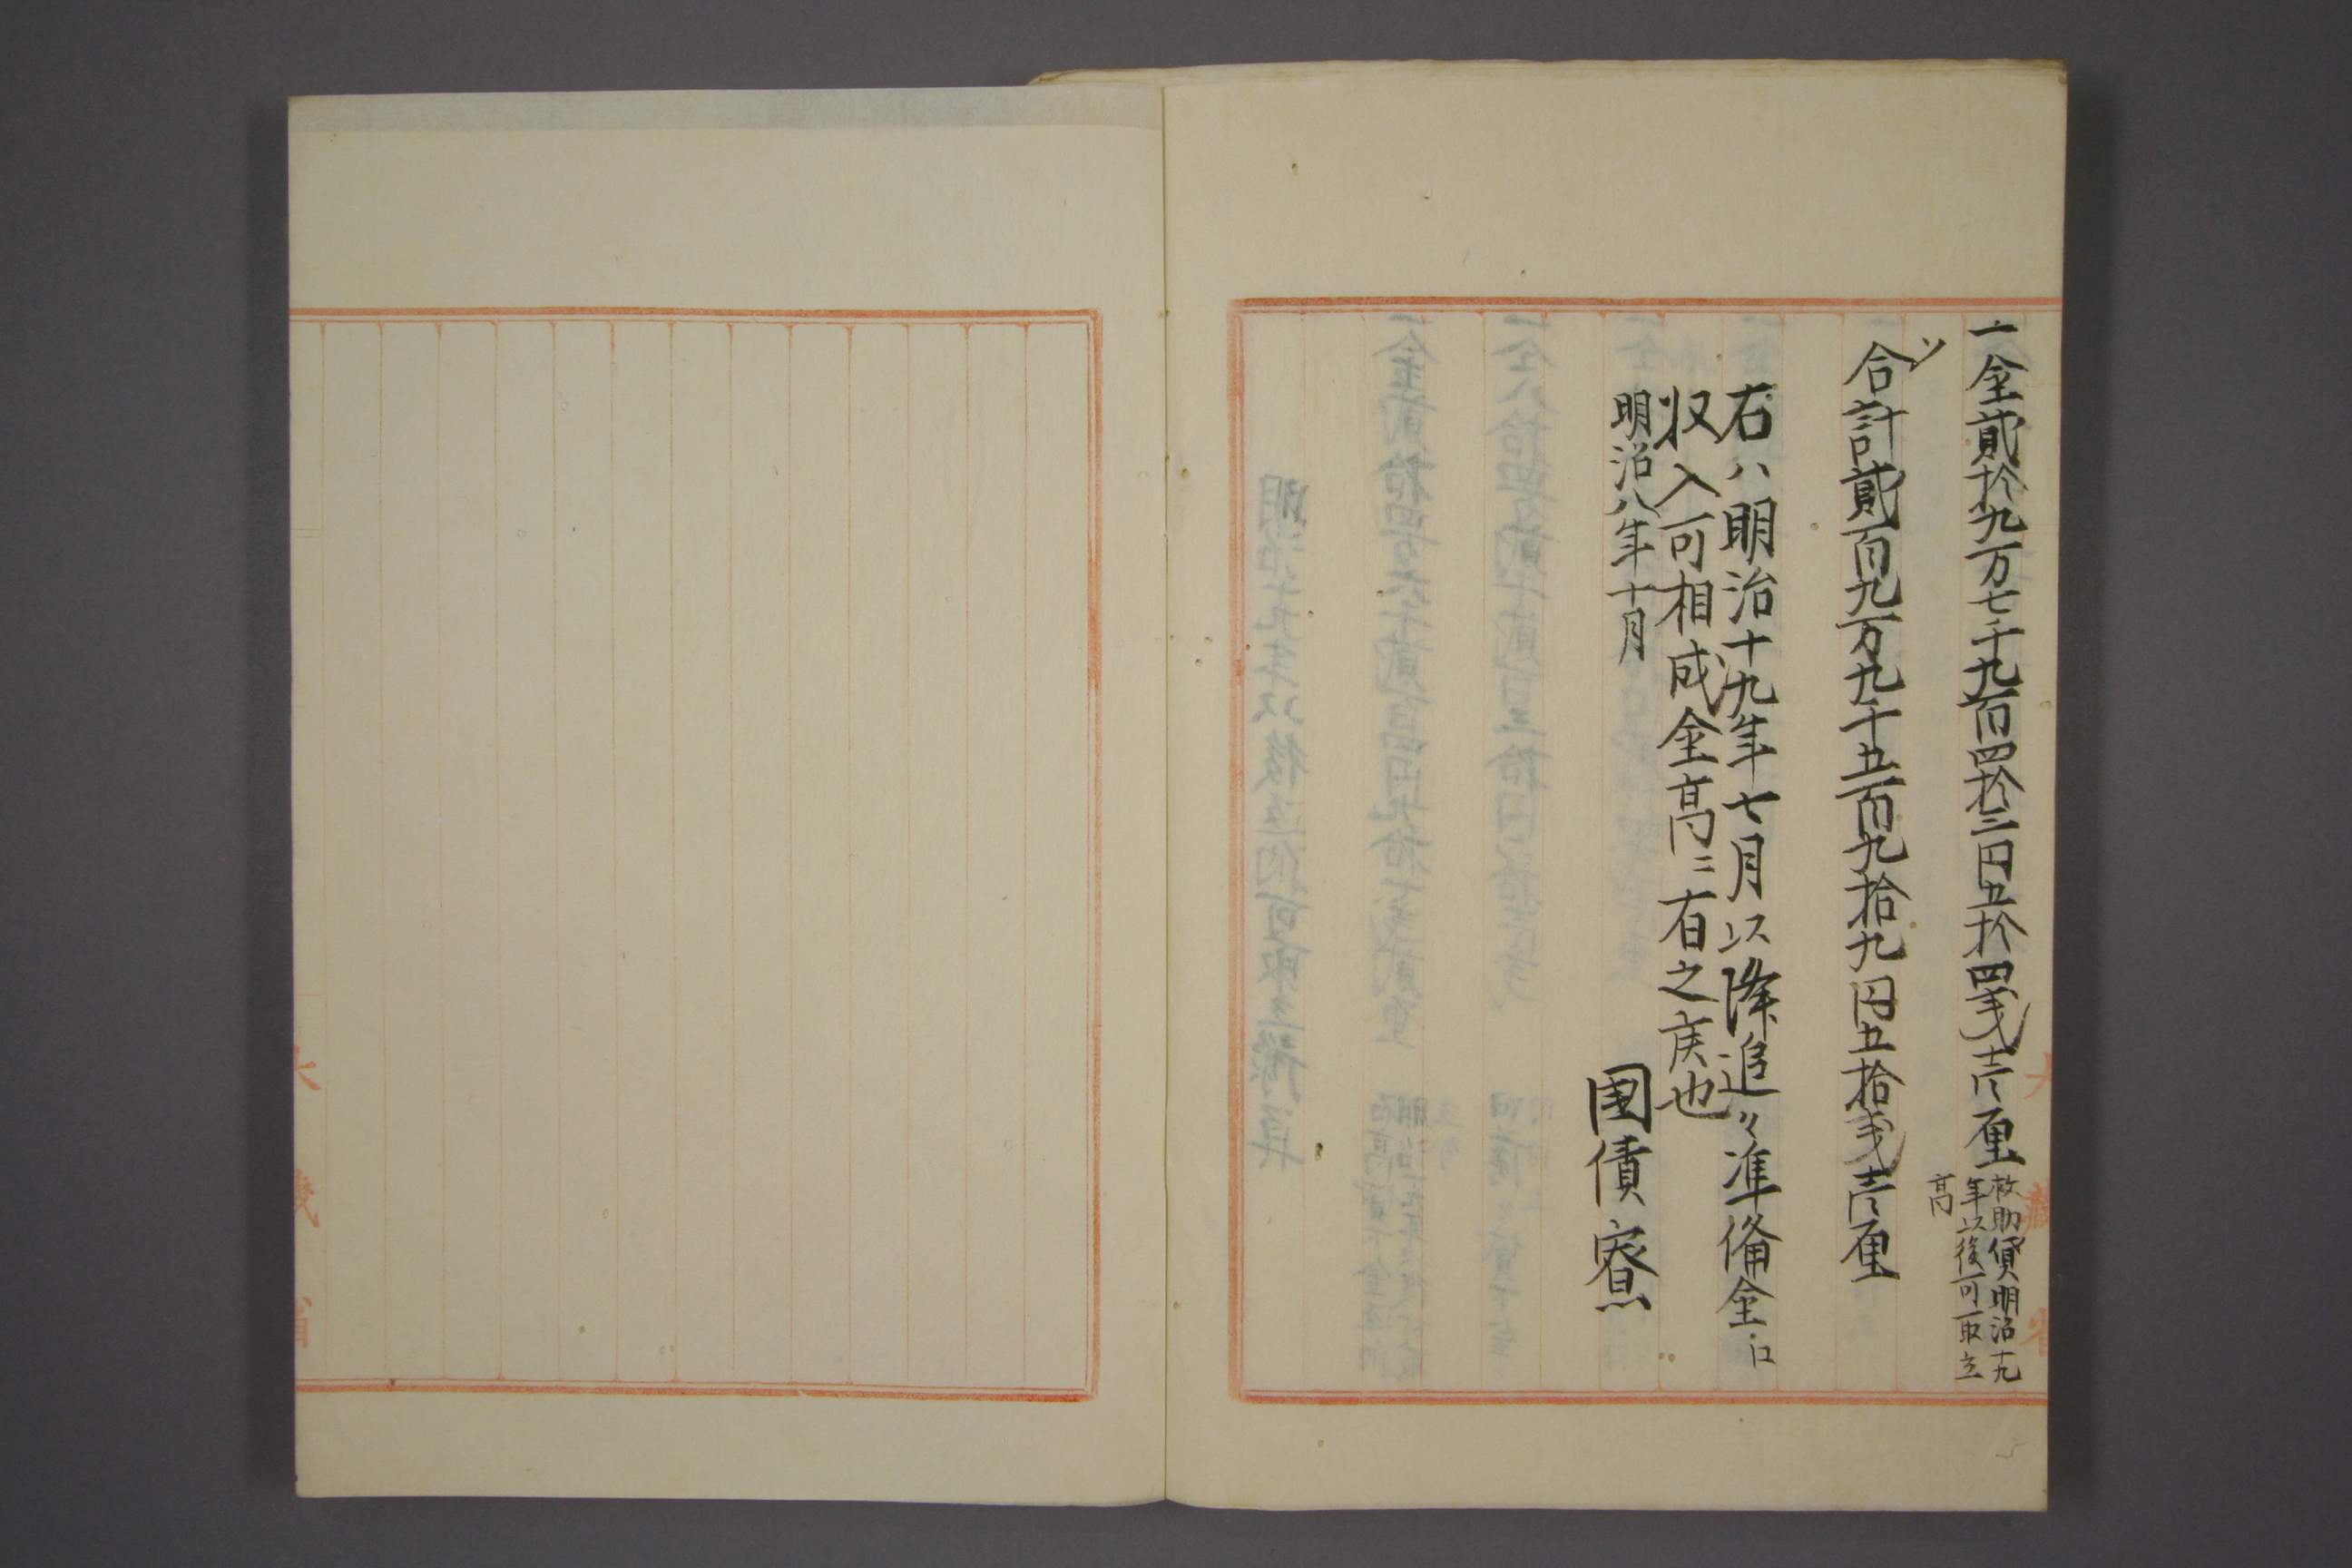 一金貳拾九万七千九百四拾三円五拾四戋壱厘
救助貸明治十九
年以後可取立
高
合計貳百九万九千五百九拾九円五拾戋壱厘
右ハ明治十九年七月以降追〻準備金口
収入可相成金高ニ有之候也
明治八年十月
国債寮
大藏省